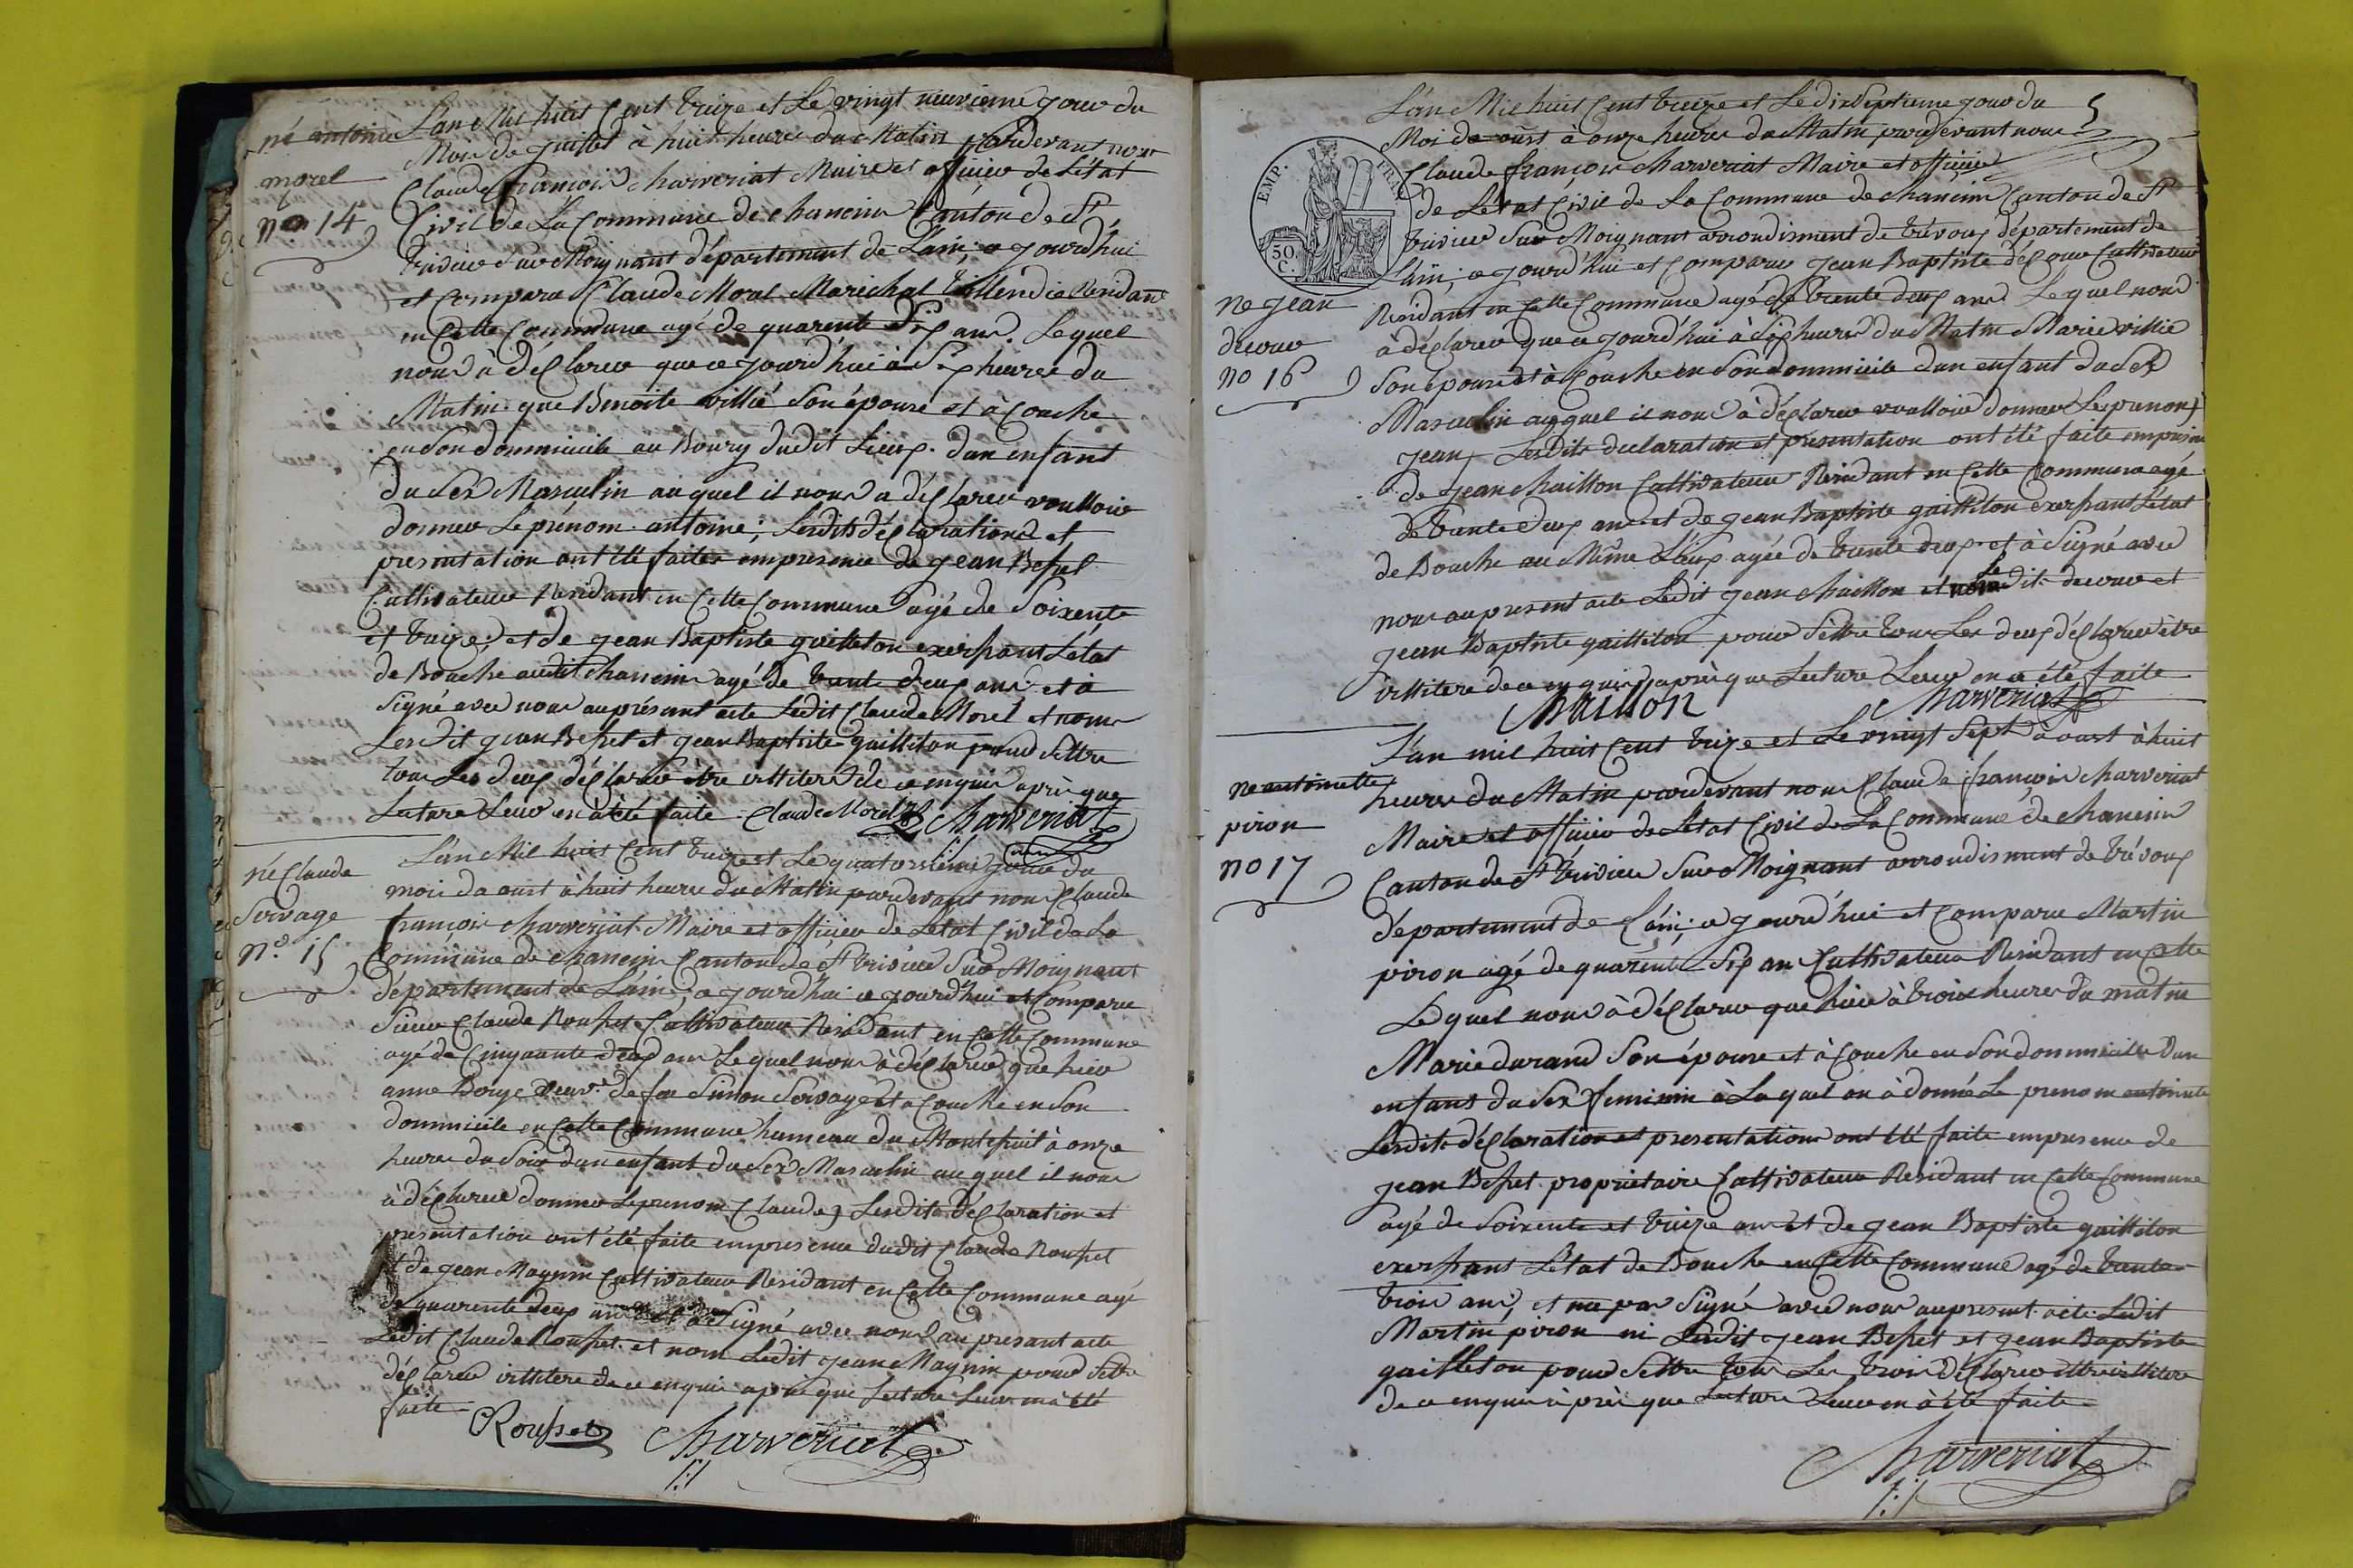 né antoine
morel
no 14
L'an Mil huit Cent treize et Le vingt neuvieme jour du
Mois de juillet à huit heures du Matin pardevant nous
Claude françois Charveriat Maire et officier de L'état
Civil de La Commune de chaneins Canton de St
trivier Sur Moignant département de L'ain; ce jourd'hui
et Comparu Claude Morel Marechal Résidant
en Cette Commune agé de quarente Six ans. Le quel
nous à déClarer que ce jourd'hui à Six heures du
Matin que Benoite villié Son épouse et à Couche
en Son dommicile au Bourg dudit Lieux. dun enfant
du Sex Masculin au quel il nous a déClarer voulloir
donner Le prénom antoine; Lesdits déClarations et
presentation ont été faites empresence de jean Besset
Cultivateur Residant en Cette Commune agé de Soixente
et treize; et de jean Baptiste guilleton exersant L'état
de Bouche audit chaneins agé de trente deux ans et à
Signé avec nous au présent acte Ledit Claude Morel et nom
Lesdit jean Besset et jean Baptiste gailliton pour Settre
tous Les deux déClarer être illitere de ce enquis après que
Lecture Leur en à été faite Claude Morel Charveriat
né Claude
Servage
no. 15
L'an Mil huit Cent treize et Le quatorsieme jour du
mois daoust à huit heures du Matin pardevant nous Claude
françois Charveriat Maire et officier de L'état Civil de La
Commune de chaneins Canton de St trivier Sur Moignant
département de L'ain; ce jourd'hui ce jourd'hui et Comparu
Sieur Claude Rousset Cultivateur Résidant en Cette Commune
agé de Cinquante deux ans Le quel nous à déClarer que hier
anne Borge veuve de feu Simon Servage et a Couche en Son
dommicile en Cette Commune hameau du à onze
heures du Soir dun enfant du Sex Masculin au quel il nous
à déClarer donner Le prenom Claude, Lesdits déClaration et
presentation ont été faite empresence dudit Claude Rousset
et de jean Magnin Cultivateur Residant en Cette Commune agé
de quarente deux ans et à Signé avec nous au present acte
Ledit Claude Rousset et nom Ledit jean Magnin pour Settre
déClarer illitere de ce enquis après que Lecture Leur en à été
faite
Rousset Charveriat
5
EMP. FRAN.
50 C.
L'an Mil huit Cent treize et Le dix Septieme jour du
Mois de aoust à onze heures du Matin pardevant nous
Claude françois Charveriat Maire et officier
de L'état Civil de La Commune de chaneins Canton de St
trivier Sur Moignant arrondisment de trévoux département de
L'ain; ce jourd'hui et Comparu jean Baptiste Cultivateur
Résidant en Cette Commune agé de trente deux ans Le quel nous
à déClarer que ce jourd'hui à Six heures du Matin Marie villié
Son épouse et à Couche en Son dommicile dun enfant du Sex
Masculin au quel il nous à déClarer voulloir donner Le prenom
jean, Lesdits declaration et presentation ont été faite empresence
de jean Chaillon Cultivateur Residant en Cette Commune agé
de trente deux ans et de jean Baptiste gailliton exersant L'état
de Bouche au Même Lieux agée de trente deux et à Signé avec
nous au present acte Ledit jean Chaillon et Ledit et
jean Baptiste gailliton pour Settre tous Les deux déClarer être
illitere de ce enquis après que Lecture Leur en a été faite
Chaillon Charveriat
né jean
no 16
né antoinette
piron
no 17
L'an mil huit Cent treize et Le vingt Sept aoust à huit
heures du Matin pardevant nous Claude françois Charveriat
Maire et officier de L'état Civil de La Commune de chaneins
Canton de St trivier Sur Moignant arrondisment de trévoux
département de L'ain; ce jourd'hui et Comparu Martin
piron agé de quarente Six ans Cultivateur Residant en Cette
Le quel nous à déClarer que hier à trois heures du matin
Marie durand Son épouse et à Couche en Son dommicile dun
enfant du Sex feminin à La quel on à donné Le prenom antoinete
Lesdits déClaration et presentation ont été faite empresence de
jean Besset propriétaire Cultivateur Residant en Cette Commune
agé de Soixente et treize ans et de jean Baptiste gailliton
exersant L'état de Bouche en Cette Commune agé de trente
trois ans, et me pas Signé avec nous au present acte Ledit
Martin piron ni Lesdit jean Besset et jean Baptiste
gailleton pour Settre tous Les trois déClarer être illitere
de ce enquis après que Lecture Leur en à été faite
Charveriat